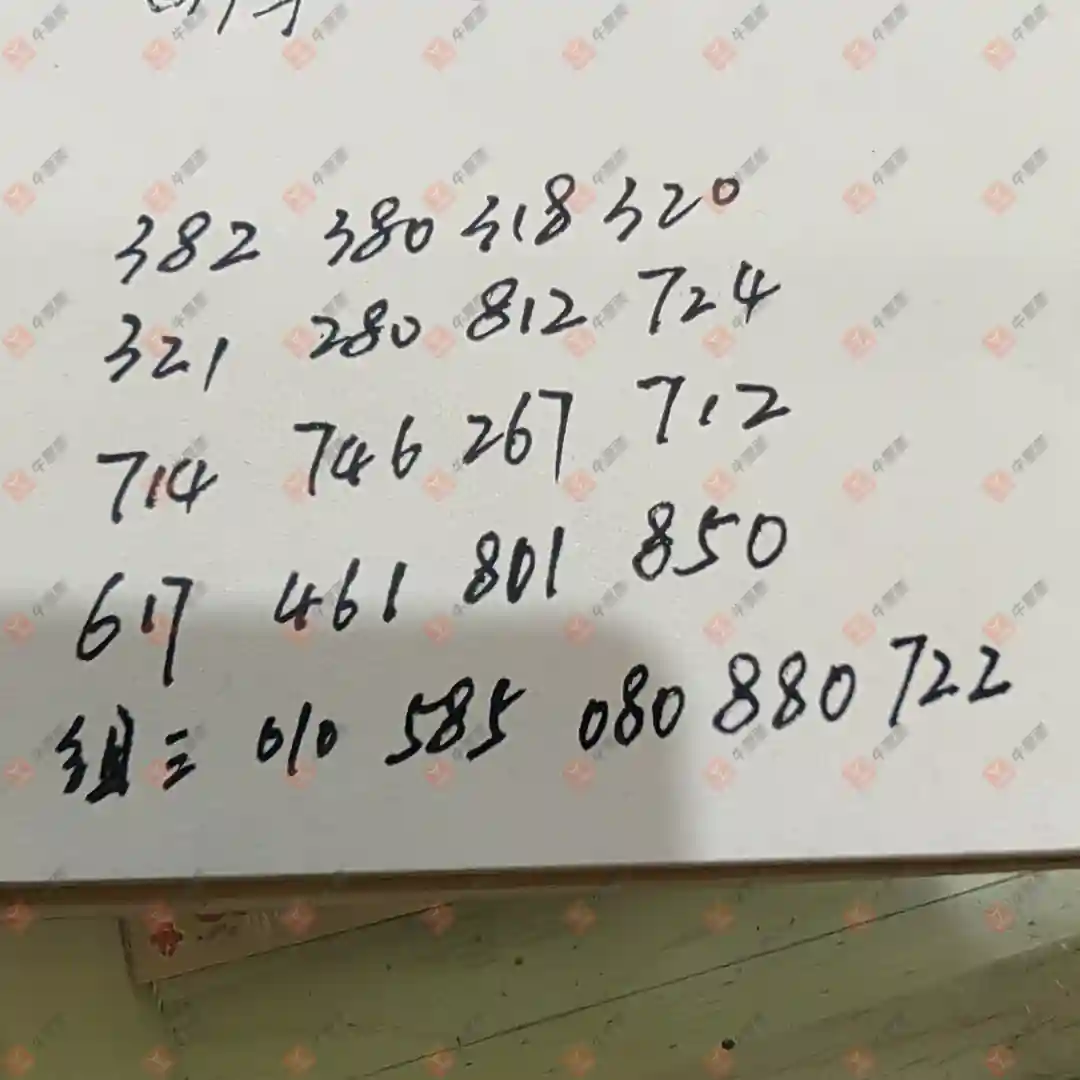 382 380 318 320
321 280 812 724
714 746 267 712
617 461 801 850
组三 010 585 080 880 722